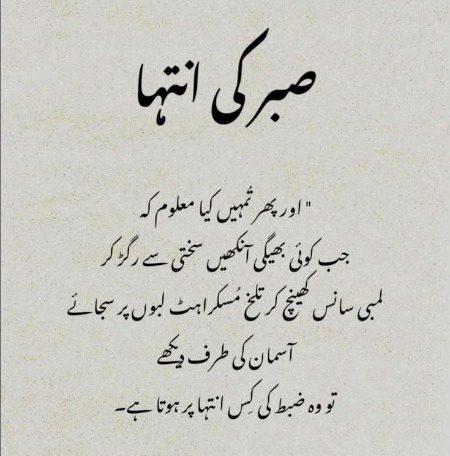 صبر کی انتہا
" اور پھر تُمہیں کیا معلوم کہ
جب کوئی بھیگی آنکھیں سختی سے رگڑ کر
لمبی سانس کھینچ کر تلخ مُسکراہٹ لبوں پر سجائے
آسمان کی طرف دیکھے
تو وہ ضبط کی کِس انتہا پر ہوتا ہے۔